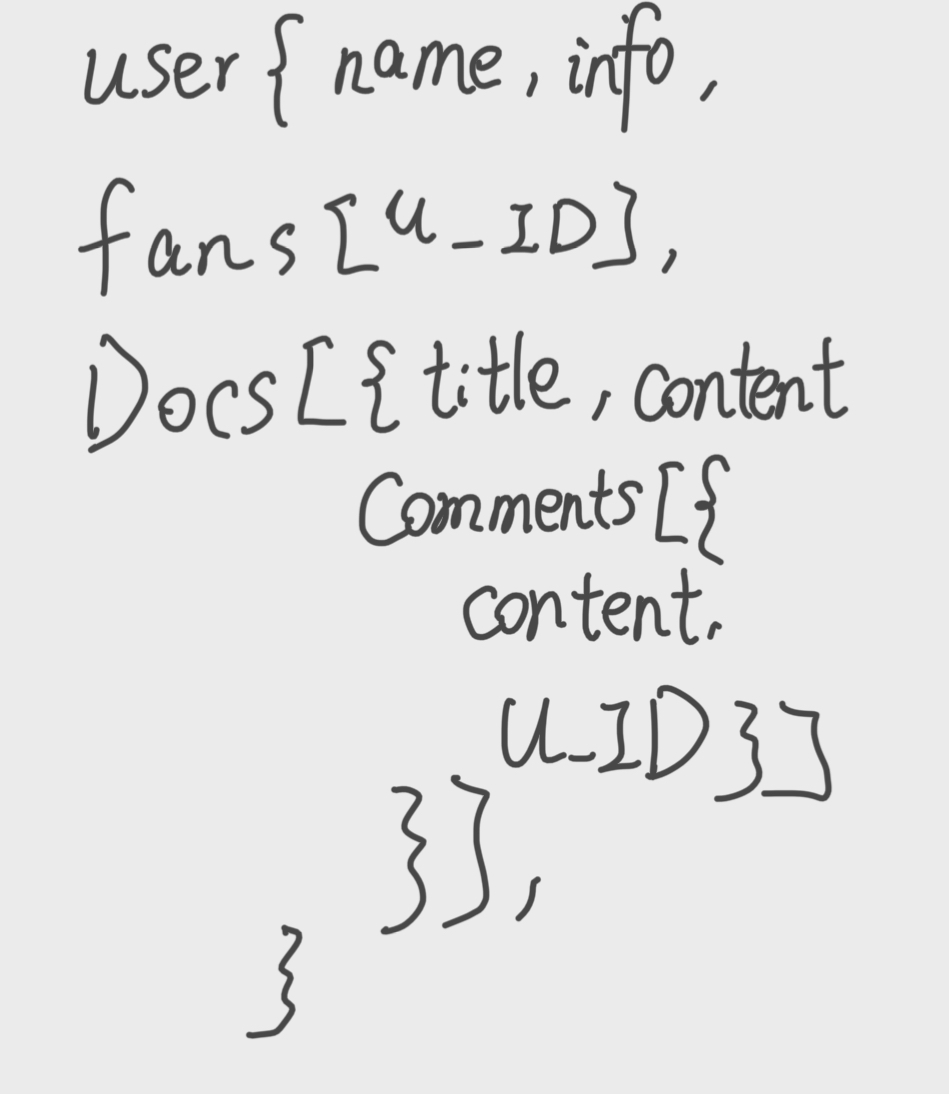 user { name, info,
fans [u_ID],
Docs [{ title, content
Comments [{
content,
U_ID }]
}],
}